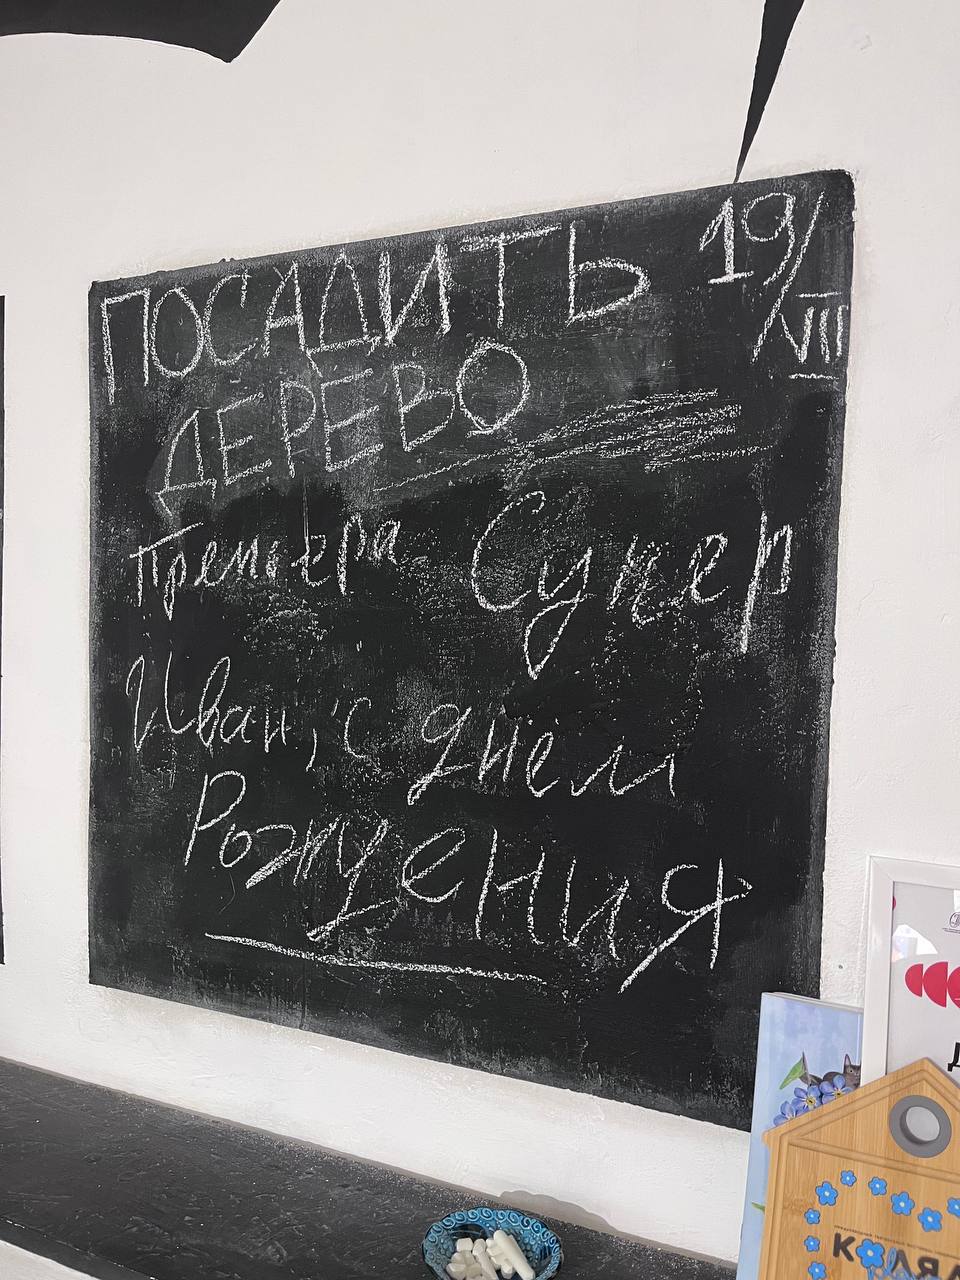 ПОСАДИТЬ 19/VII
ДЕРЕВО
Премьера Супер
Иван, с днём
Рождения